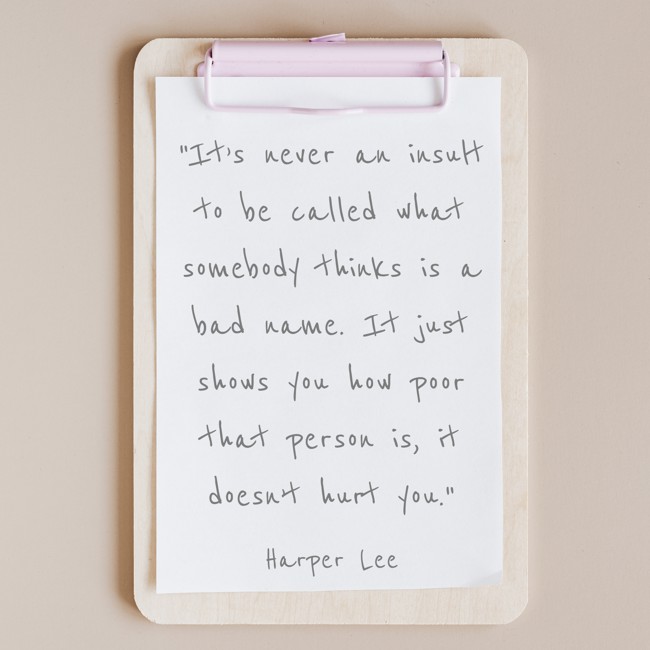 "It's never an insult
to be called what
somebody thinks is a
bad name. It just
shows you how poor
that person is, it
doesn't hurt you."
Harper Lee